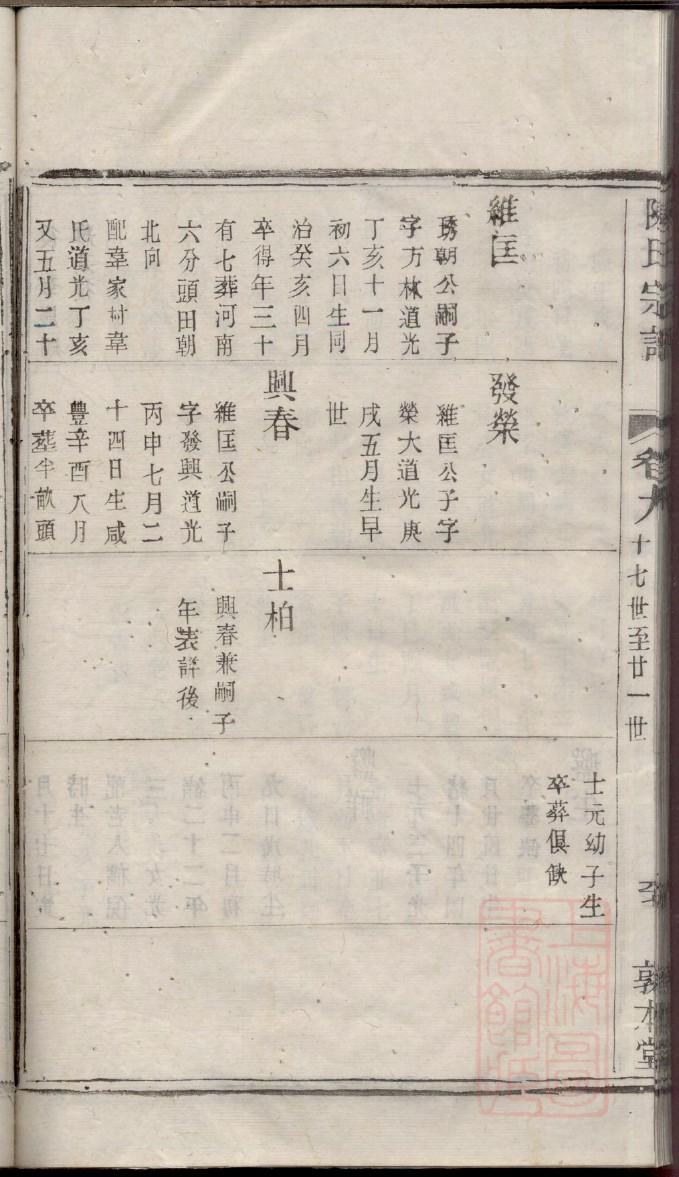 陳氏宗譜
卷九
十七世至廿一世
敦本堂
維匡
琇朝公嗣子
字方林道光
丁亥十一月
初六日生同
治癸亥四月
卒得年三十
有七葬河南
六分頭田朝
北向
配韋家村韋
氏道光丁亥
又五月二十
發榮
維匡公子字
榮大道光庚
戌五月生早
世
興春
維匡公嗣子
字發興道光
丙申七月二
十四日生咸
豐辛酉八月
卒葬半畝頭
士柏
興春兼嗣子
年表詳後
士元幼子生
卒葬俱缺
上海圖書館藏